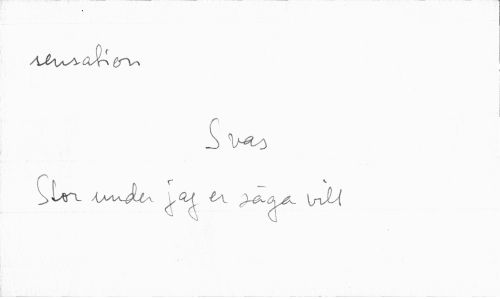 sensation
Svas
Stor under jag er säga vill